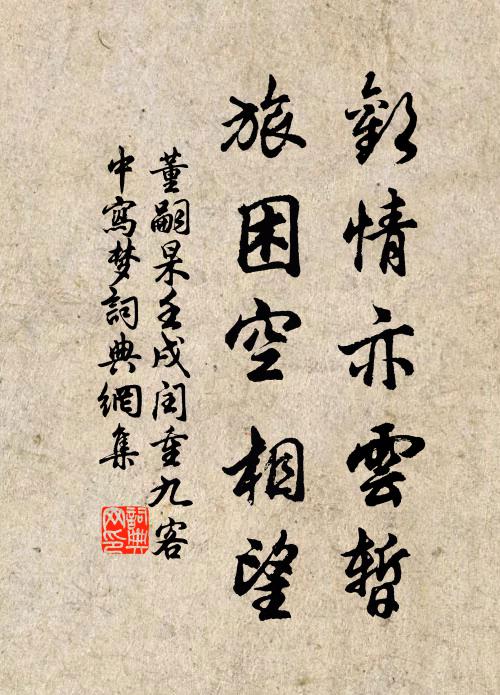 歡情亦雲暫
旅困空相望
董嗣杲壬戌閏重九客
中寫夢詞典網集
詞典
网印